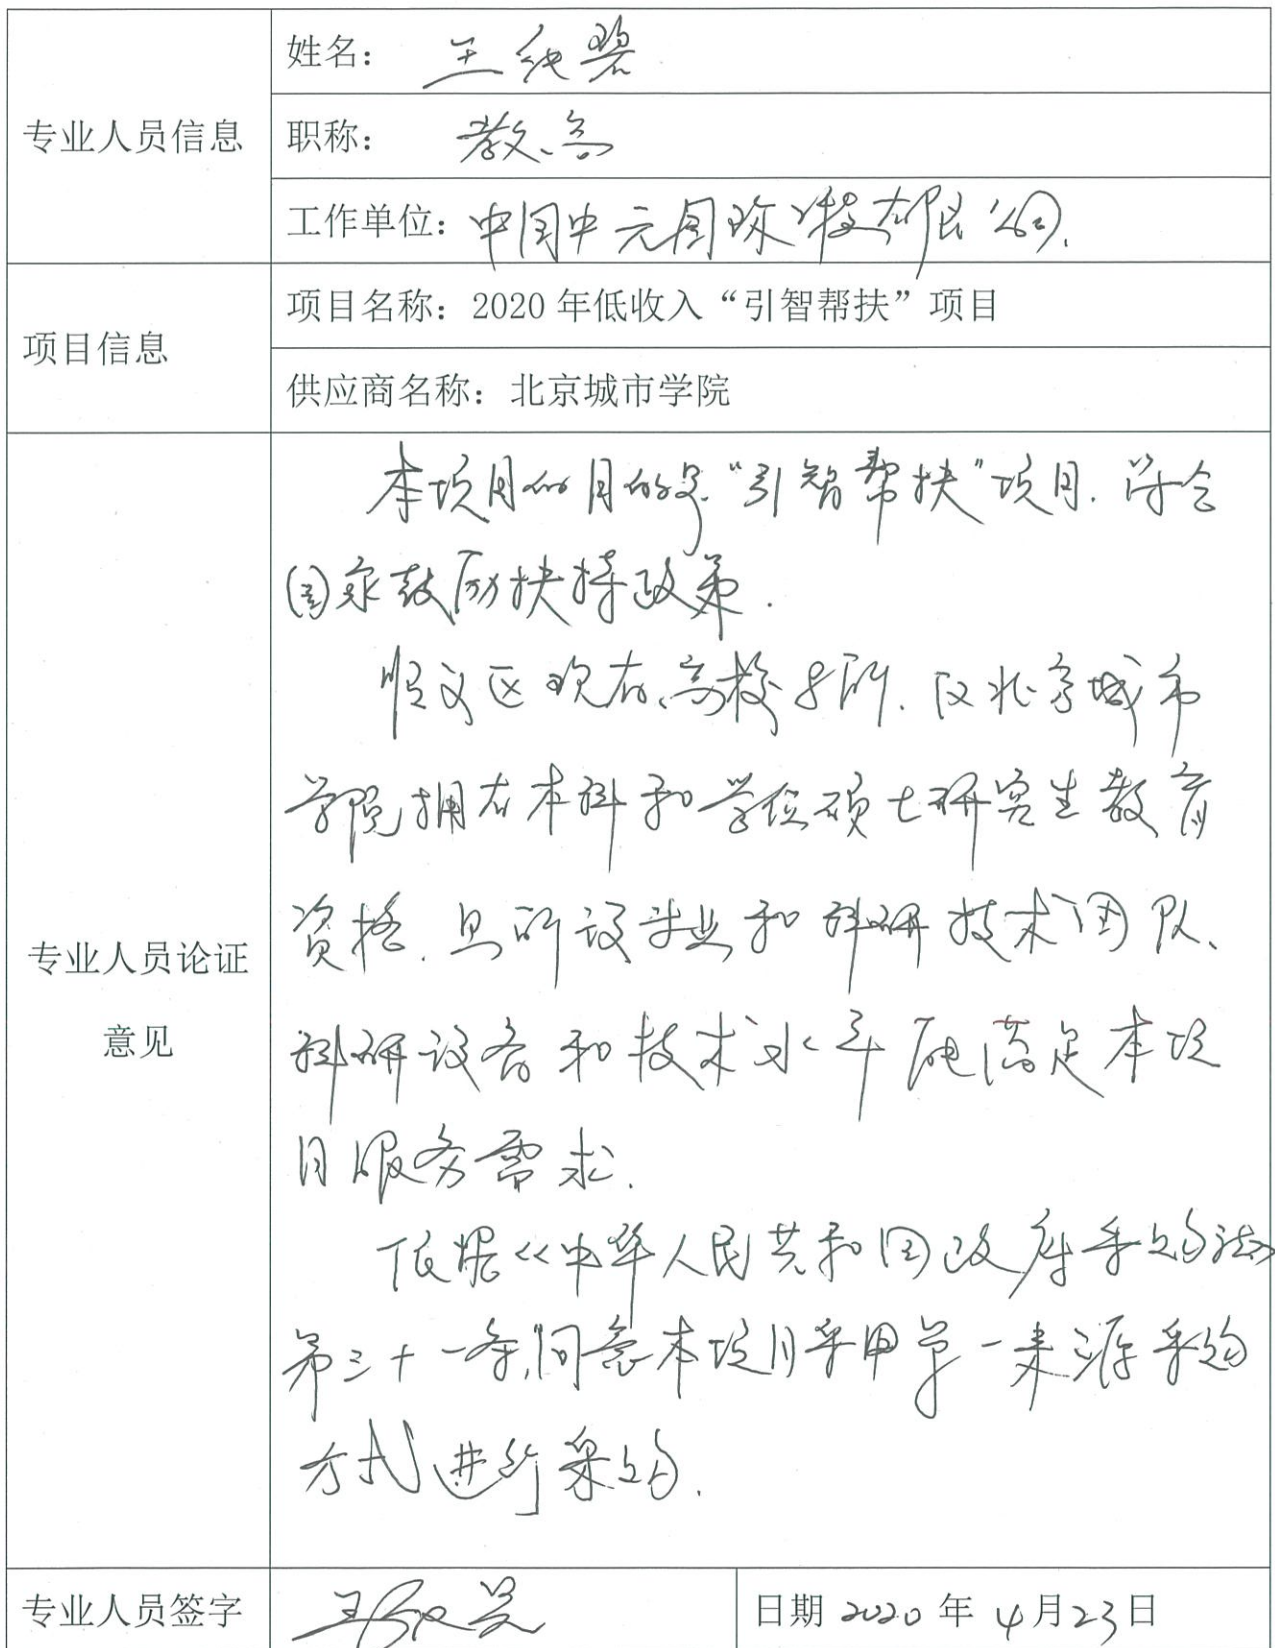 专业人员信息
姓名：王纯碧
职称：教高
工作单位：中国中元国际工程有限公司.
项目信息
项目名称：2020 年低收入“引智帮扶”项目
供应商名称：北京城市学院
专业人员论证
意见
本项目的目的是“引智帮扶”项目. 符合
国家鼓励扶持政策.
顺义区现有高校 所. 仅北京城市
学院拥有本科和学位硕士研究生教育
资格. 且所设专业和科研技术团队、
科研设备和技术水平能满足本项
目服务需求.
依据《中华人民共和国政府采购法》
第三十一条,同意本项目采用单一来源采购
方式进行采购.
专业人员签字
日期 2020 年 4月23日